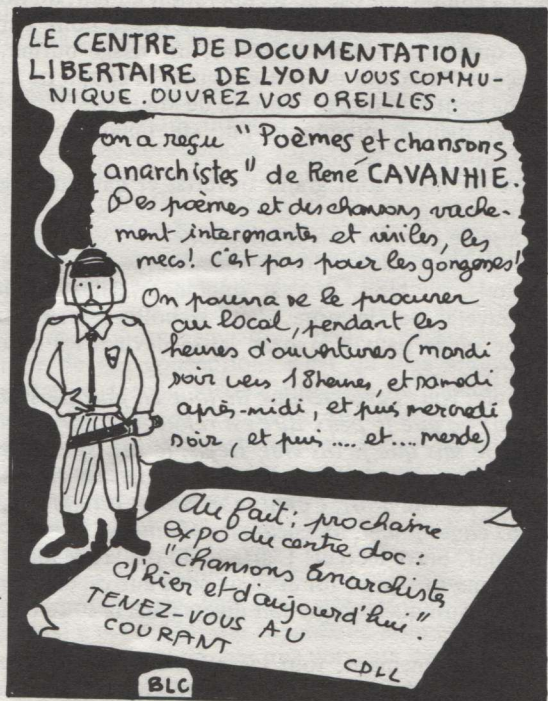 LE CENTRE DE DOCUMENTATION
LIBERTAIRE DE LYON VOUS COMMU-
NIQUE. OUVREZ VOS OREILLES :
on a reçu "Poèmes et chansons
anarchistes" de René CAVANHIE.
Des poèmes et des chansons vache-
ment interonantes et viriles, les
mecs! C'est pas pour les gonzesses!
On pourra se le procurer
au local, pendant les
heures d'ouvertures (mardi
soir vers 18 heures, et samedi
après-midi, et puis mercredi
soir, et puis .... et .... merde)
Au fait : prochaine
expo du centre doc :
"chansons anarchistes
d'hier et d'aujourd'hui".
TENEZ-VOUS AU
COURANT
CDLL
BLC